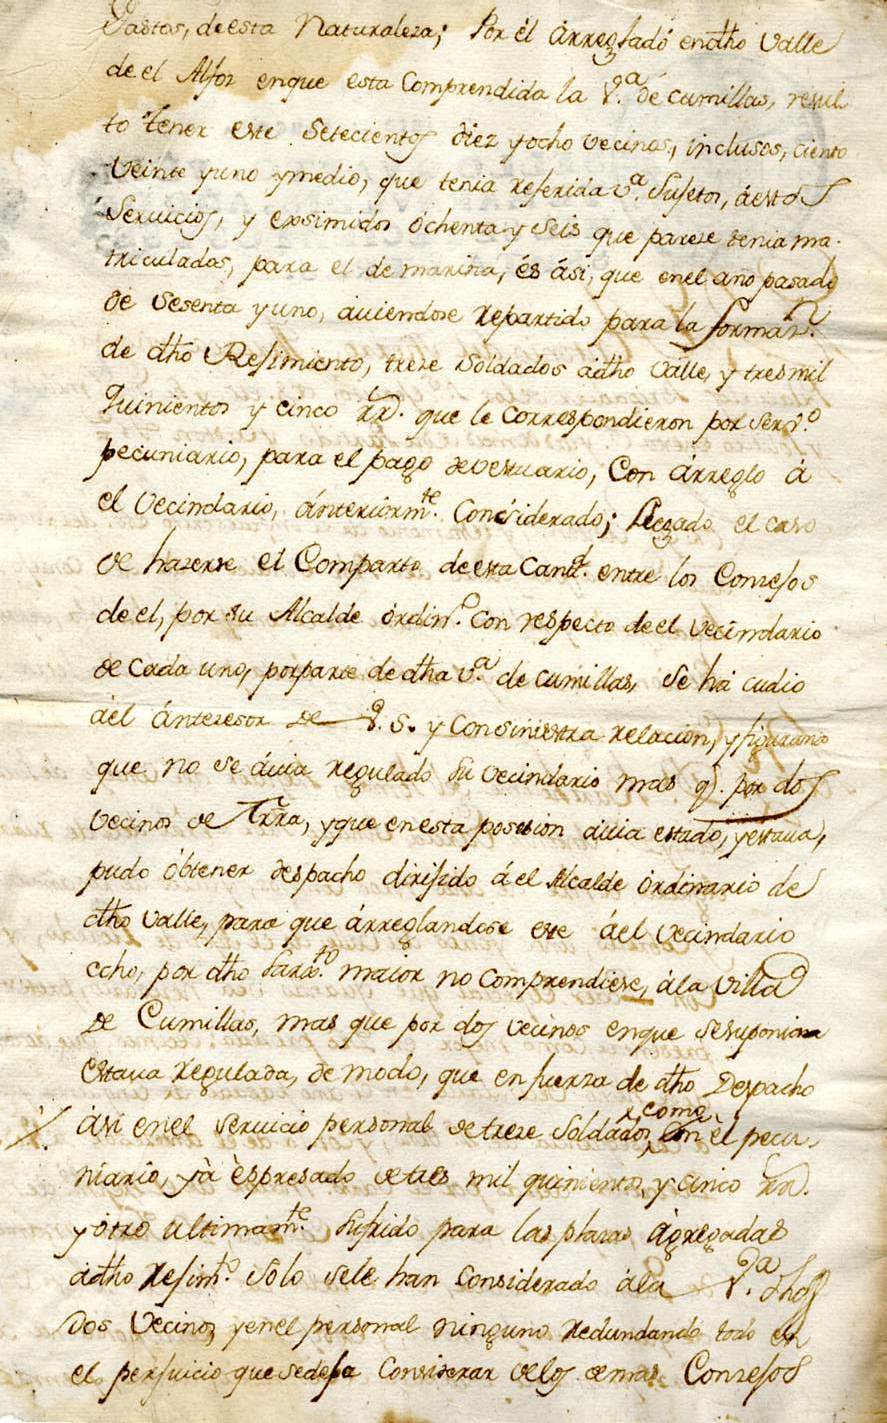 Gastos, de esta Naturaleza; Por él árreglado en dho Valle
de el Alfoz enque esta Comprendida la V.ª de Cumillas, resul
to tener este Setecientos diez y ocho vecinos, inclusos, ciento
Veinte y uno y medio, que tenia referida v.ª Sujetos, á estos
Servicios, y exsimidos óchenta y seis que pareze tenia ma-
triculados, para el de marina, és ási, que en el año pasado
de Sesenta y uno, auiendose Repartido para la forma.n
de dho Resimiento, treze Soldados a dho Valle, y tres mil
Quinientos y cinco rr.s que le correspondieron por Serv.º
pecuniario, para el pago de vestuario, Con árreglo á
el Vecindario, ánteriorm.te Considerado; LLegado el caso
de hazerse el Comparto de esta Cantd. entre los Consejos
de el, por su Alcalde órdin.º con respecto de el vecindario
de Cada uno, por parte de dha v.ª de Cumillas, Se ha cudio
ál ántezesor de V. S. y Con siniestra relacion, y figurano
que no se áuia regulado Su vecindario mas q.e por dos
Vecinos de Trra, y que en esta posesion auia estado, y estaua,
pudo óbtener despacho dirijido á el Alcalde órdinario de
dho Valle, para que árreglandose este ál Vecindario
echo, por dho Sarx.to maior no Comprendiese, á la Villa
de Cumillas, mas que por dos vecinos enque Se suponia
Estaua Regulada, de modo, que en fuerza de dho Despacho
ási en el Servicio personal de treze Soldados, como en èl pecu-
niario, yà èspresado de tres mil quinientos, y cinco rr.s
y otro ultimam.te Sufrido para las plazas ágregadas
a dho Resim.to Solo se le han Considerado á la V.ª dhos
Dos Vecinos, y en el personal ninguno Redundando todo en
el perjuicio que se deja Considerar de los demas Consejos